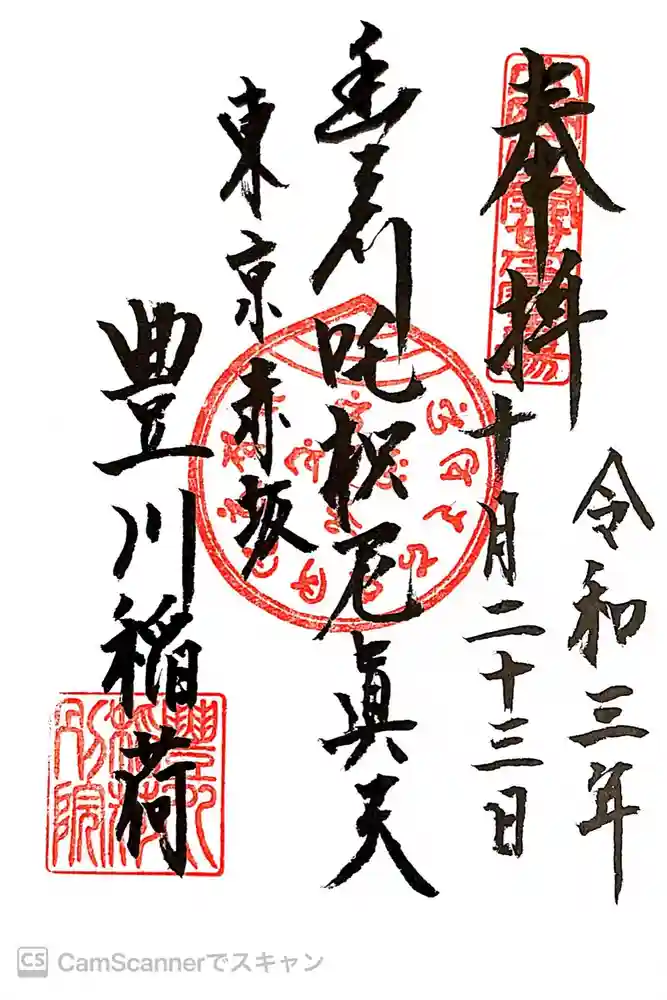 奉拝
令和三年
十月二十三日
豊川吒枳尼眞天
東京赤坂
豊川稲荷
豐川
稲荷
別院
CS CamScannerでスキャン